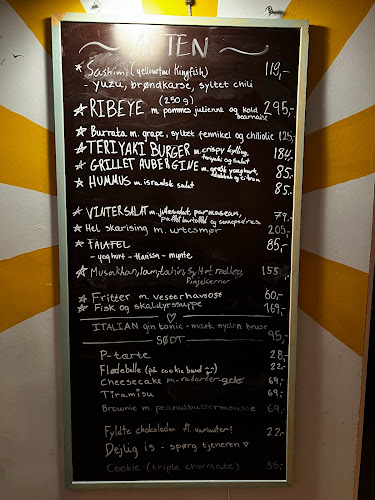 AFTEN
Sashimi (yellowtail kingfish) 119,-
- yuzu, brøndkarse, syltet chili
(250 g)
RIBEYE m. pommes julienne og kold bearnaise 295,-
Burrata m. grape, syltet fennikel og chiliolie 125,-
TERIYAKI BURGER m. crispy kylling, 184,-
GRILLET AUBERGINE m. græsk youghurt, 85,-
HUMMUS m. israelsk salat 85,-
VINTERSALAT m. julesalat, parmasean, 79,-
Hel skarising m. urtesmør 205,-
FALAFEL 85,-
- yoghurt - Harissa - mynte
Musakhan, lam, tahin, syltet rødløg, 155,-
Pinjekerner
Fritter m. vesterhavsost 60,-
Fisk og skaldyrssuppe 169,-
ITALIAN gin tonic - mark syden 95,-
SØDT
P-tærte 28,-
Flødebolle (på cookie bund) 22,-
Cheesecake m. 69,-
Tiramisu 69,-
Brownie m. peanutbuttermousse 69,-
Fyldte chokolader fl. varianter! 22,-
Dejlig is - spørg tjeneren
Cookie (triple 35,-